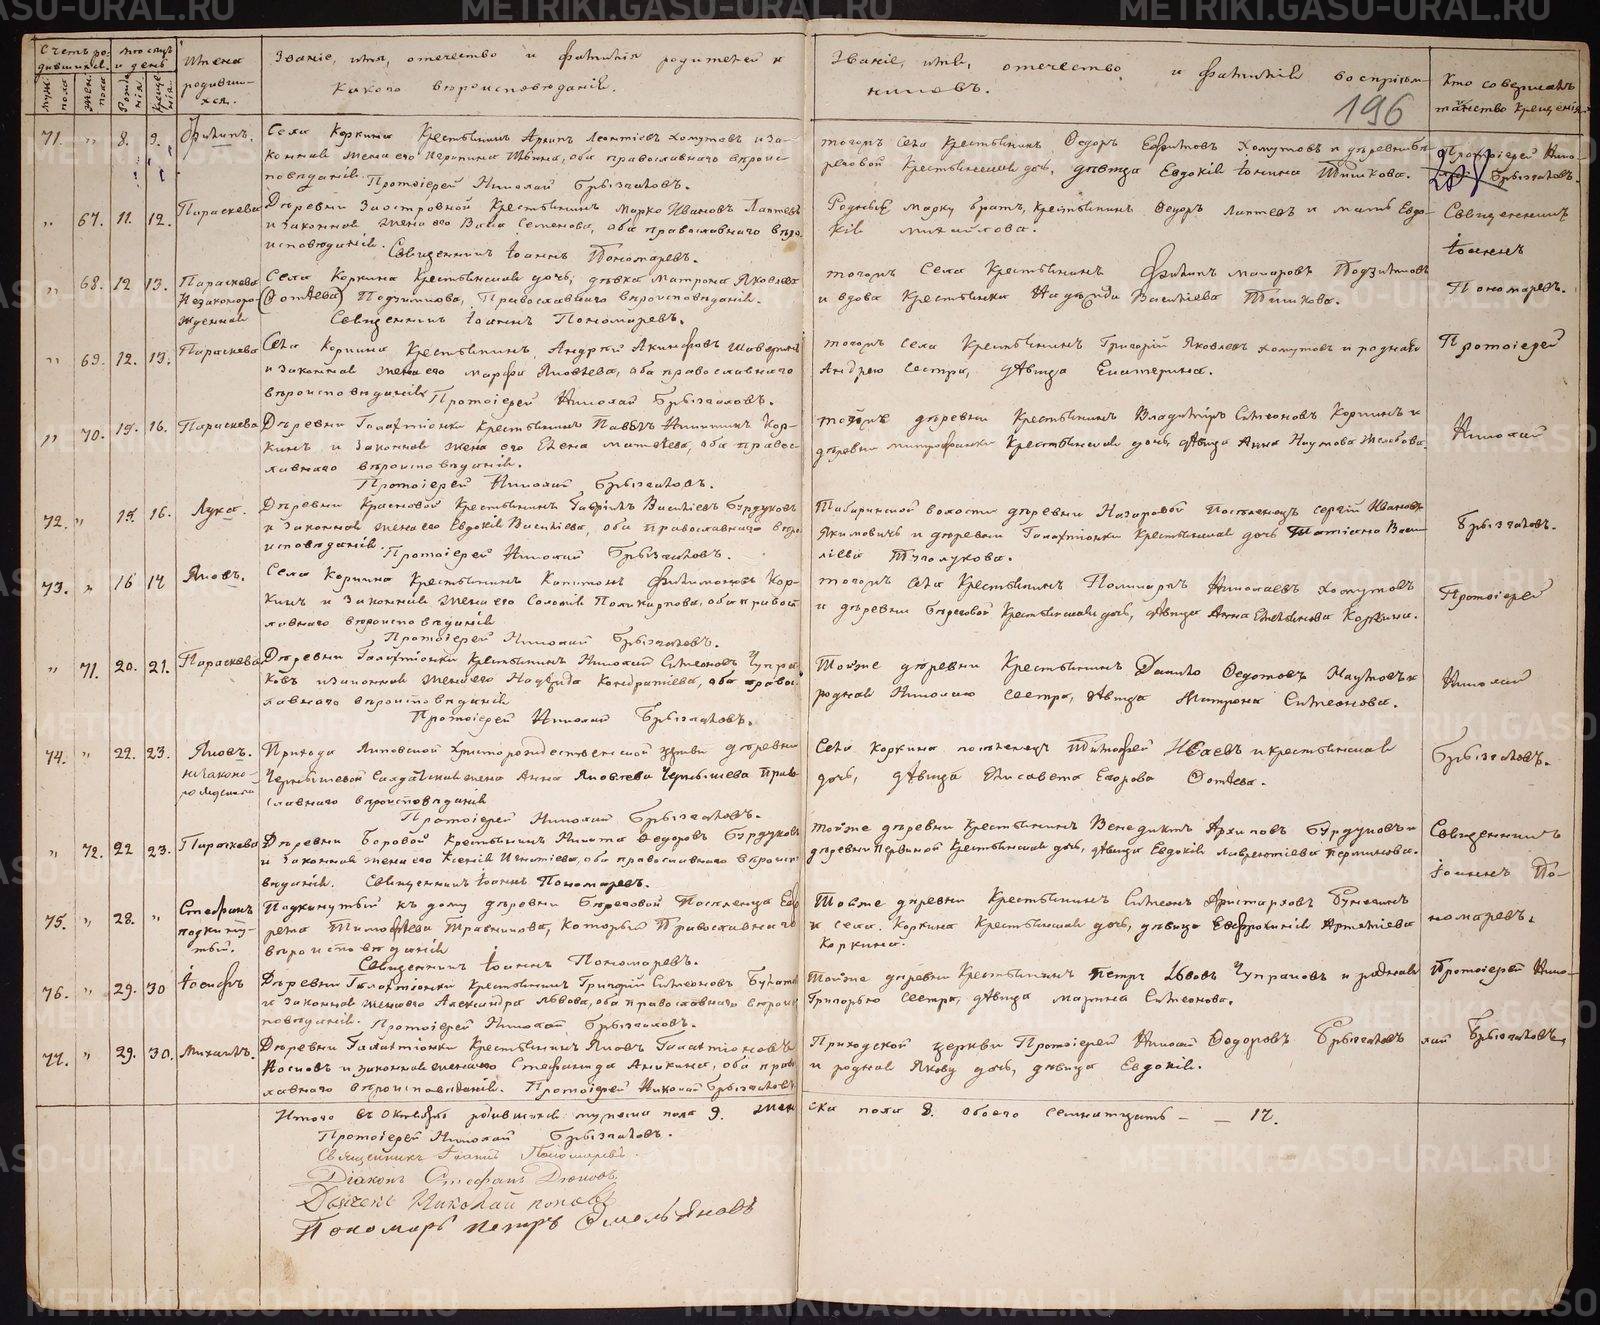 METRIKI.GASO-URAL.RU
Счетъ ро-
дившихся.
мѣсяцъ
и день
Имена
родивши-
хся.
Званіе, имя, отечество и фамилія родителей и
какого вѣроисповѣданія.
Званіе, имя, отечество, и фамилія воспріем-
никовъ.
Кто совершалъ
таинство крещенія.
муж. пола
жен. пола
рожде нія.
креще нія.
196
71. " 8. 9. Филипъ.
Села Коркина Крестьянинъ Архипъ Леонтіевъ Хомутовъ и за-
конная жена его, оба православнаго вѣроис-
повѣданія. Протоіерей Николай Брызгаловъ.
тогоже села Крестьянинъ Ѳедоръ Хомутовъ и деревни Бе-
реговой Крестьянская дочь, дѣвица Евдокія Тишкова.
Протоіерей Нико-
лай Брызгаловъ.
" 67. 11. 12. Параскева
Деревни Заостровной Крестьянинъ Марко Ивановъ Лаптевъ
и законная жена его Семенова, оба православнаго вѣро-
исповѣданія. Священникъ Іоаннъ Пономаревъ.
Родный Марку братъ, Крестьянинъ Ѳедоръ Лаптевъ и мать Евдо-
кія Михайлова.
Священникъ
Іоаннъ
Пономаревъ.
" 68. 12 13. Параскева
Незаконоро-
жденная
Села Коркина Крестьянская дочь, дѣвка Матрона Яковлева
(Фотѣева) Подзимкова, Православнаго вѣроисповѣданія.
Священникъ Іоаннъ Пономаревъ.
тогоже Села Крестьянинъ Филипъ Макаровъ Подзимковъ
и вдова Крестьянка Надежда Васильева Тишкова.
" 69. 12. 13. Параскева
Села Коркина Крестьянинъ Андрей Акинфовъ
и законная жена его Марфа Яковлева, оба православнаго
вѣроисповѣданія Протоіерей Николай Брызгаловъ.
тогоже села Крестьянинъ Григорій Яковлевъ Хомутовъ и родная
Андрею сестра, дѣвица Екатерина.
Протоіерей
Николай
Брызгаловъ.
" 70. 15. 16. Параскева
Деревни Галактіонки Крестьянинъ Павелъ Никитинъ Кор-
кинъ и законная жена его Елена Матѳеева, оба правос-
лавнаго вѣроисповѣданія.
Протоіерей Николай Брызгаловъ.
тойже деревни Крестьянинъ Владиміръ Симеоновъ Коркинъ и
деревни Митрофановки Крестьянская дочь, дѣвица Анна Наумова
72. " 15. 16. Лука.
Деревни Красновой Крестьянинъ Гавріилъ Васильевъ Бурдуковъ
и законная жена его Евдокія Васильева, оба православнаго вѣро-
исповѣданія Протоіерей Николай Брызгаловъ.
Табаринской волости деревни Назаровой Поселенецъ Сергій Ивановъ
Якимовичъ и деревни Галактіонки Крестьянская дочь Татіана Васи-
лiева
73. " 16 17 Яковъ.
Села Коркина Крестьянинъ Капитонъ Филимоновъ Кор-
кинъ и законная жена его Соломія Поликарпова, оба правос-
лавнаго вѣроисповѣданія
Протоіерей Николай Брызгаловъ.
тогоже села Крестьянинъ Поликарпъ Николаевъ Хомутовъ
и деревни Береговой Крестьянская дочь, дѣвица Анна Емельянова Коркина.
Протоіерей
Николай
Брызгаловъ.
" 71. 20. 21. Параскева
Деревни Галактіонки Крестьянинъ Николай Симеоновъ Чупра-
ковъ и законная жена его Надежда Кондратіева, оба правос-
лавнаго вѣроисповѣданія
Протоіерей Николай Брызгаловъ.
Тойже деревни Крестьянинъ Данило Ѳедотовъ Наумовъ и
родная Николаю сестра, дѣвица Матрона Симеонова.
74. " 22. 23. Яковъ.
незаконо-
рожденный
Прихода Липовской Христорождественской церкви деревни
Чернышевой Солдатская жена Анна Яковлева Чернышева Право-
славнаго вѣроисповѣданія
Протоіерей Николай Брызгаловъ.
Села Коркина поселенецъ Тимофей Исаевъ и крестьянская
дочь, дѣвица Елисавета Егорова Фотѣева.
" 72. 22 23. Параскева
Деревни Боровой Крестьянинъ Никита Ѳедоровъ Бурдуковъ
и законная жена его Ксенія Игнатіева, оба православнаго вѣроиспо-
вѣданія. Священникъ Іоаннъ Пономаревъ.
тойже деревни Крестьянинъ Венедиктъ Архиповъ Бурдуковъ и
деревни Первиной Крестьянская дочь, дѣвица Евдокія Лаврентіева Перминова.
Священникъ
Іоаннъ По-
номаревъ.
75. " 28. " Стефанъ
подкину-
тый.
Подкинутый къ дому деревни Береговой Поселенца Еф-
рема Тимоѳѣева Травникова, который Православнаго
вѣроисповѣданія
Священникъ Іоаннъ Пономаревъ.
Тойже деревни Крестьянинъ Симеонъ Аристарховъ
и села Коркина Крестьянская дочь, дѣвица Евфросинія Артеміева
Коркина.
76. " 29. 30 Іосифъ
Деревни Галактіонки Крестьянинъ Григорій Симеоновъ
и законная жена его Александра Львова, оба православнаго вѣроис-
повѣданія. Протоіерей Николай Брызгаловъ.
Тойже деревни Крестьянинъ Петръ Львовъ Чупраковъ и родная
Григорью сестра, дѣвица Марина Симеонова.
Протоіерей Нико-
лай Брызгаловъ.
77. " 29. 30. Михаилъ.
Деревни Галактіонки Крестьянинъ Яковъ Галактіоновъ
Носковъ и законная жена его Стефанида Аникина, оба правос-
лавнаго вѣроисповѣданія. Протоіерей Николай Брызгаловъ
Приходской церкви Протоіерей Николай Ѳедоровъ Брызгаловъ
и родная Якову дочь, дѣвица Евдокія.
Итого въ Октябрѣ родившихся мужеска пола 9. жен
ска пола 8. обоего семнатцать — — 17.
Протоіерей Николай Брызгаловъ.
Священникъ Іоаннъ Пономаревъ.
Діаконъ Стефанъ
Дьячекъ Николай Поповъ
Пономарь Петръ Омельяновъ